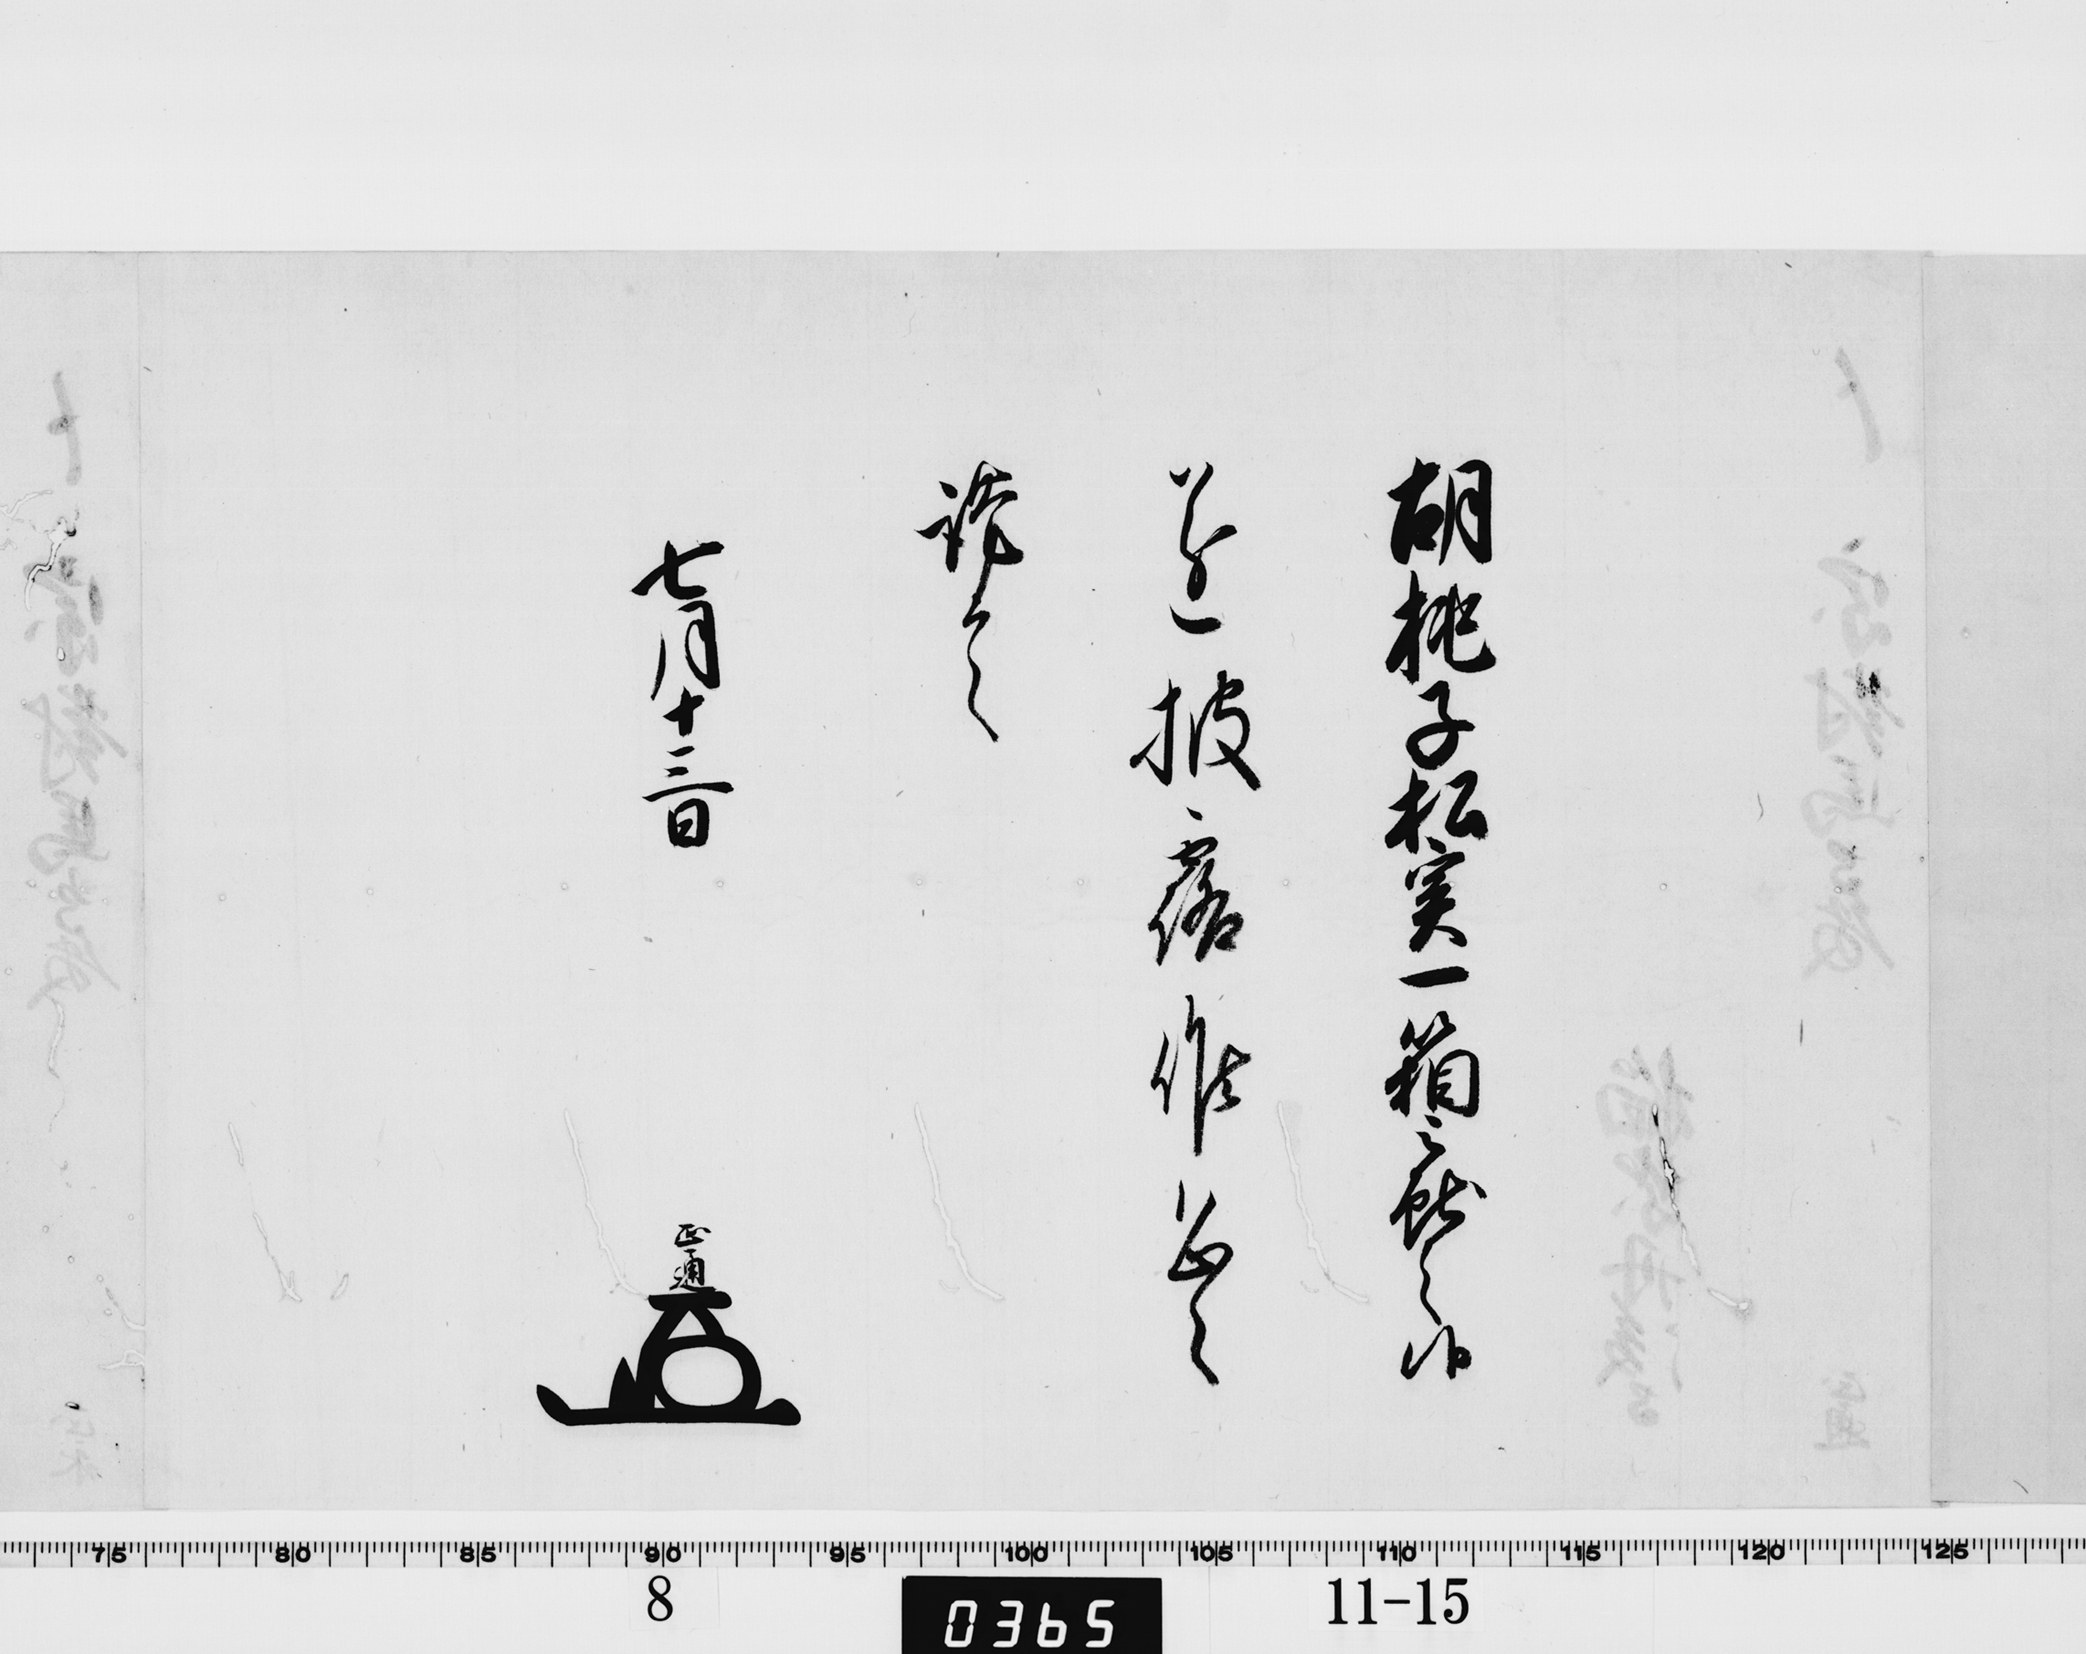 胡桃子松実一箱被献之候
遂披露候恐々
謹言
七月十三日
正通
75 80 85 90 95 100 105 110 115 120 125
8 0365 11-15